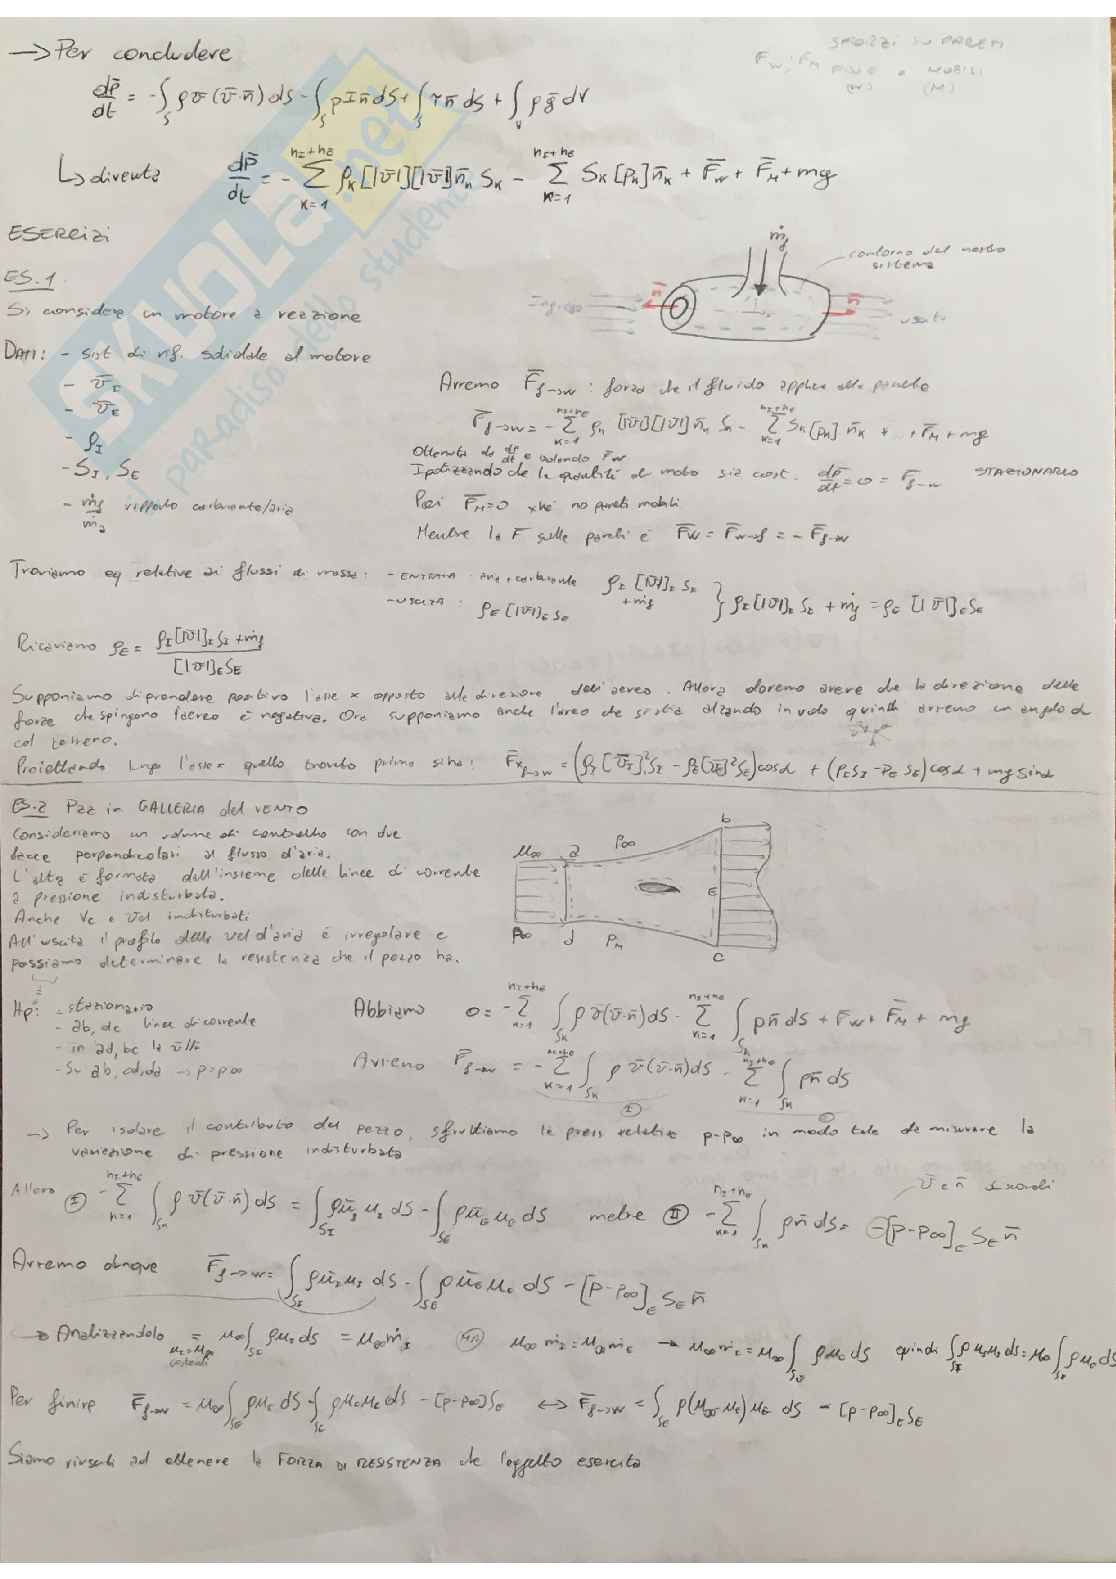 SFORZI SU PARETI
F_W, F_M FISSE e MOBILI
(W) (M)
→ Per concludere
dp̄/dt = -∫_S ρ v̄ (v̄·n̄) dS - ∫_S p I n̄ dS + ∫_S τ n̄ dS + ∫_V ρ ḡ dV
↳ diventa dp̄/dt = - Σ_{K=1}^{n_I+n_E} ρ_K [|v̄|][|v̄|] n̄_K S_K - Σ_{K=1}^{n_I+n_E} S_K [p_K] n̄_K + F̄_W + F̄_M + mg
ESERCIZI
ES.1
Si considera un motore a reazione
ṁ_f
contorno del nostro sistema
Ingresso
n̄
n̄
uscita
DATI: - sist di rif. solidale al motore
- v̄_I
- v̄_E
- ρ_I
- S_I, S_E
- ṁ_f/ṁ_a rapporto carburante/aria
Avremo F̄_{f→w} : forza che il fluido applica alle parete
F̄_{f→w} = - Σ_{K=1}^{n_I+n_E} ρ_K [|v̄|][|v̄|] n̄_K S_K - Σ_{K=1}^{n_I+n_E} S_K [p_K] n̄_K + .. + F̄_M + mg
Ottenuta da dp̄/dt e isolando F̄_W
Ipotizzando che la quantità di moto sia cost. dp̄/dt = 0 = F̄_{f→w} STAZIONARIO
Poi F̄_M = 0 xké no pareti mobili
Mentre la F sulle pareti è F̄_W = F̄_{w→f} = - F̄_{f→w}
Troviamo eq relative ai flussi di massa: - ENTRATA : aria + carburante ρ_I [|v̄|]_I S_I + ṁ_f
- USCITA : ρ_E [|v̄|]_E S_E } ρ_I [|v̄|]_I S_I + ṁ_f = ρ_E [|v̄|]_E S_E
Ricaviamo ρ_E = (ρ_I [|v̄|]_I S_I + ṁ_f) / ([|v̄|]_E S_E)
Supponiamo di prendere positivo l'asse x opposto alla direzione dell'aereo. Allora dovremo avere che la direzione delle
forze che spingono l'aereo è negativa. Ora supponiamo anche l'aereo che si stia alzando in volo quindi avremo un angolo α
col terreno.
Proiettando lungo l'asse x quello trovato prima si ha: F̄_{x f→w} = (ρ_I [v̄_I]² S_I - ρ_E [v̄_E]² S_E) cosα + (p_I S_I - p_E S_E) cosα + mg sinα
ES.2 Pzz in GALLERIA del VENTO
Consideriamo un volume di controllo con due
facce perpendicolari al flusso d'aria.
L'altra è formata dall'insieme delle linee di corrente
a pressione indisturbata.
Anche Vc e Vd indisturbati
All'uscita il profilo della vel d'aria è irregolare e
possiamo determinare la resistenza che il pezzo ha.
μ_∞ a p_∞ b
E
p_∞ d p_M c
Hp: - stazionario
- ab, dc linee di corrente
- in ad, bc la v̄ // n̄
- Su ab, cd, da → p = p_∞
Abbiamo 0 = - Σ_{K=1}^{n_I+n_E} ∫_{S_K} ρ v̄ (v̄·n̄) dS - Σ_{K=1}^{n_I+n_E} ∫_{S_K} p n̄ dS + F̄_W + F̄_M + mg
Avremo F̄_{f→w} = - Σ_{K=1}^{n_I+n_E} ∫_{S_K} ρ v̄ (v̄·n̄) dS - Σ_{K=1}^{n_I+n_E} ∫_{S_K} p n̄ dS
Ⓘ Ⓘ Ⓘ
→ Per isolare il contributo del pezzo, sfruttiamo le press relative p-p_∞ in modo tale da misurare la
variazione di pressione indisturbata
v̄ e n̄ discordi
Allora Ⓘ - Σ_{K=1}^{n_I+n_E} ∫_{S_K} ρ v̄ (v̄·n̄) dS = ∫_{S_I} ρ ū_I u_I dS - ∫_{S_E} ρ ū_E u_E dS mentre Ⓘ Ⓘ - Σ_{K=1}^{n_I+n_E} ∫_{S_K} p n̄ dS = -[p-p_∞]_E S_E n̄
Avremo dunque F̄_{f→w} = ∫_{S_I} ρ ū_I u_I dS - ∫_{S_E} ρ ū_E u_E dS - [p-p_∞]_E S_E n̄
→ Analizzandolo = u_∞ ∫_{S_I} ρ u_I dS = u_∞ ṁ_I MA u_∞ ṁ_I = u_∞ ṁ_E → u_∞ ṁ_I = u_∞ ∫_{S_E} ρ u_E dS quindi ∫_{S_I} ρ u_I u_I dS = u_∞ ∫_{S_E} ρ u_E dS
u_I = u_∞ costanti
Per finire F̄_{f→w} = u_∞ ∫_{S_E} ρ u_E dS - ∫_{S_E} ρ u_E u_E dS - [p-p_∞] S_E ↔ F̄_{f→w} = ∫_{S_E} ρ (u_∞ - u_E) u_E dS - [p-p_∞]_E S_E
Siamo riusciti ad ottenere la FORZA DI RESISTENZA che l'oggetto esercita
SKUOLA.net
paradiso dello studente